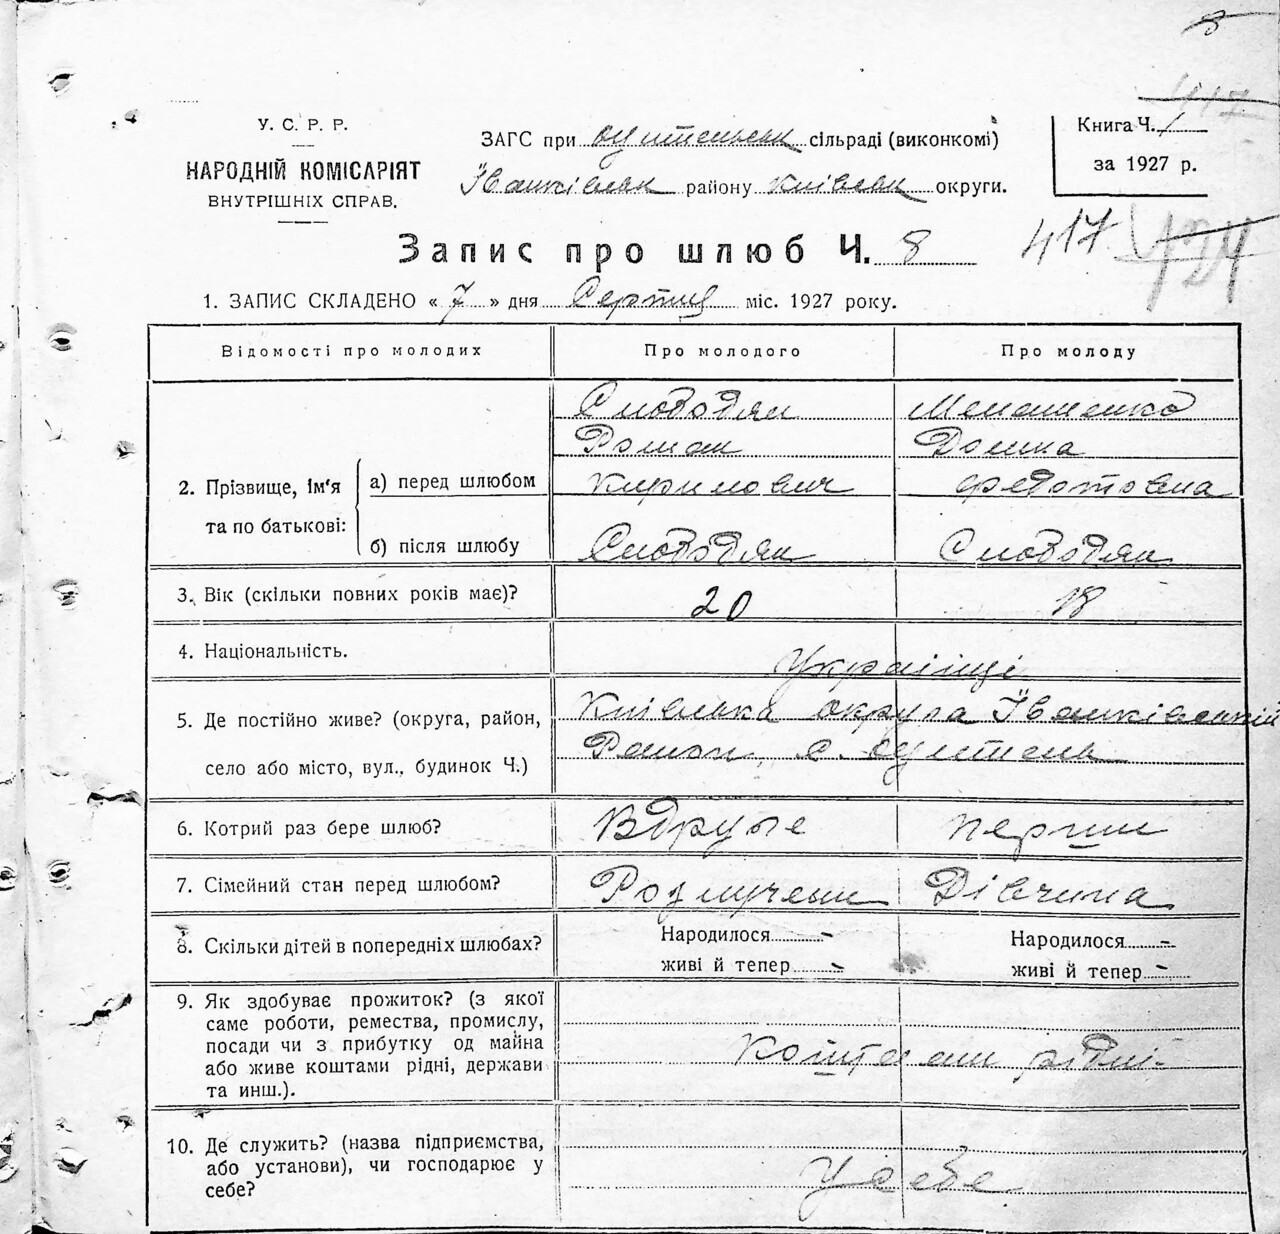 8
417
У. С. Р. Р.
НАРОДНІЙ КОМІСАРІЯТ
ВНУТРІШНІХ СПРАВ.
ЗАГС при сільраді (виконкомі)
Іванківськ району Київськ округи.
Книга Ч. 1
за 1927 р.
Запис про шлюб Ч. 8
417 124
1. ЗАПИС СКЛАДЕНО « 7 » дня Серпня міс. 1927 року.
Відомості про молодих Про молодого Про молоду
2. Прізвище, ім'я та по батькові:
а) перед шлюбом
Слободян
Роман
Кирилович
Домна
Федотовна
б) після шлюбу Слободян Слободян
3. Вік (скільки повних років має)? 20 18
4. Національність. Українці
5. Де постійно живе? (округа, район, Київська округа Іванківський
село або місто, вул., будинок Ч.) Район, с.
6. Котрий раз бере шлюб? Вдруге перший
7. Сімейний стан перед шлюбом? Розлучений Дівчина
8. Скільки дітей в попередніх шлюбах? Народилося - Народилося -
живі й тепер - живі й тепер -
9. Як здобуває прожиток? (з якої
саме роботи, ремества, промислу,
посади чи з прибутку од майна
або живе коштами рідні, держави
та инш.). Коштами рідні
10. Де служить? (назва підприємства,
або установи), чи господарює у
себе? У себе